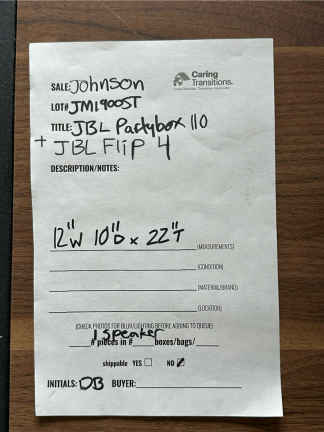 SALE: Johnson
Caring
Transitions.
LOT# JM1900ST
TITLE: JBL Partybox 110
+ JBL Flip 4
DESCRIPTION/NOTES:
12"W 10"D x 22"T
(MEASUREMENTS)
(CONDITION)
(MATERIAL/BRAND)
(LOCATION)
(CHECK PHOTOS FOR BLUR/LIGHTING BEFORE ADDING TO QUEUE)
1 speaker
# pieces in # boxes/bags/
shippable YES NO
INITIALS: OB BUYER: